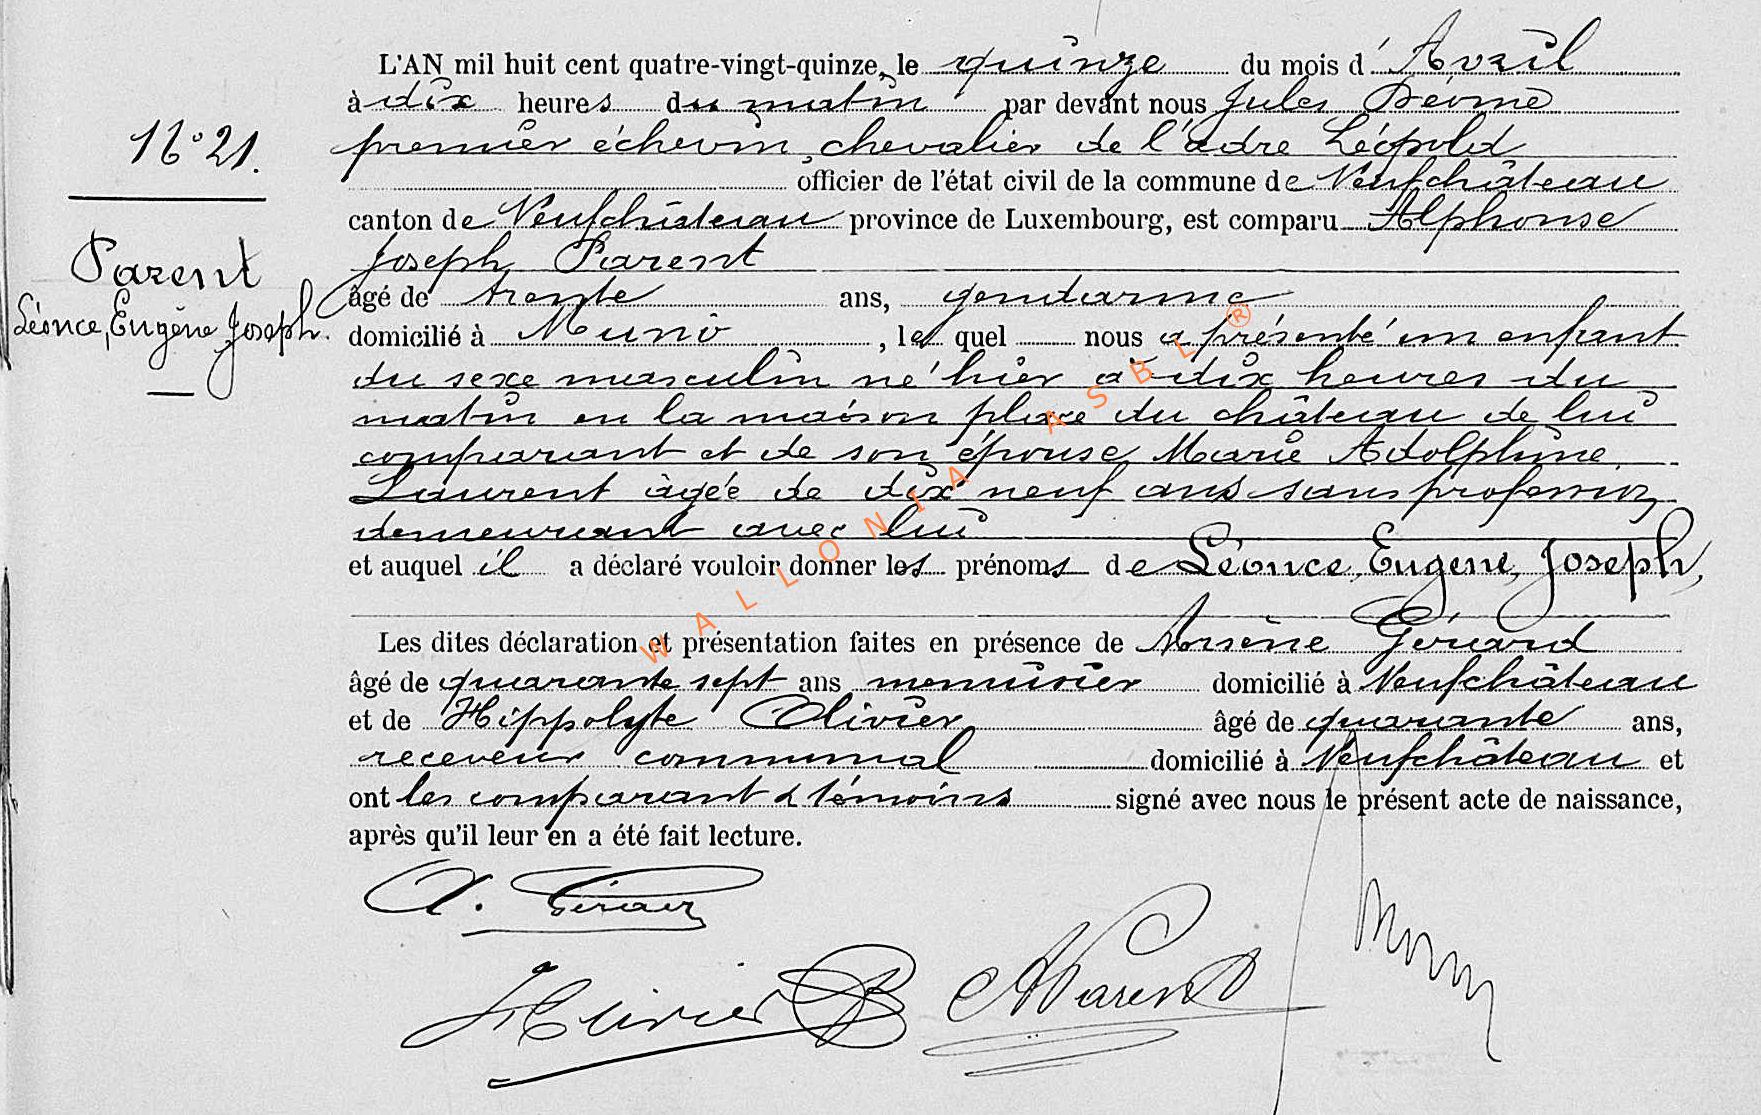 L'AN mil huit cent quatre-vingt-quinze, le quinze du mois d' Avril
à dix heures du matin par devant nous Jules
premier échevin, chevalier de l'ordre Léopold
officier de l'état civil de la commune de Neufchâteau
canton de Neufchâteau province de Luxembourg, est comparu Alphonse
Joseph Parent
âgé de trente ans, gendarme
domicilié à Muno, lequel nous a présenté un enfant
du sexe masculin né hier à dix heures du
matin en la maison place du château de lui
comparant et de son épouse Marie Adolphine
Laurent âgée de dix neuf ans sans profession
demeurant avec lui
et auquel il a déclaré vouloir donner les prénoms de Léonce, Eugène, Joseph,
Les dites déclaration et présentation faites en présence de Arsène Gérard
âgé de quarante sept ans menuisier domicilié à Neufchâteau
et de Hippolyte Olivier âgé de quarante ans,
receveur communal domicilié à Neufchâteau et
ont les comparant & témoins signé avec nous le présent acte de naissance,
après qu'il leur en a été fait lecture.
N° 21.
Parent
Léonce, Eugène Joseph.
WALLONIA ASBL ®
A. Gérard
H Olivier
A Parent